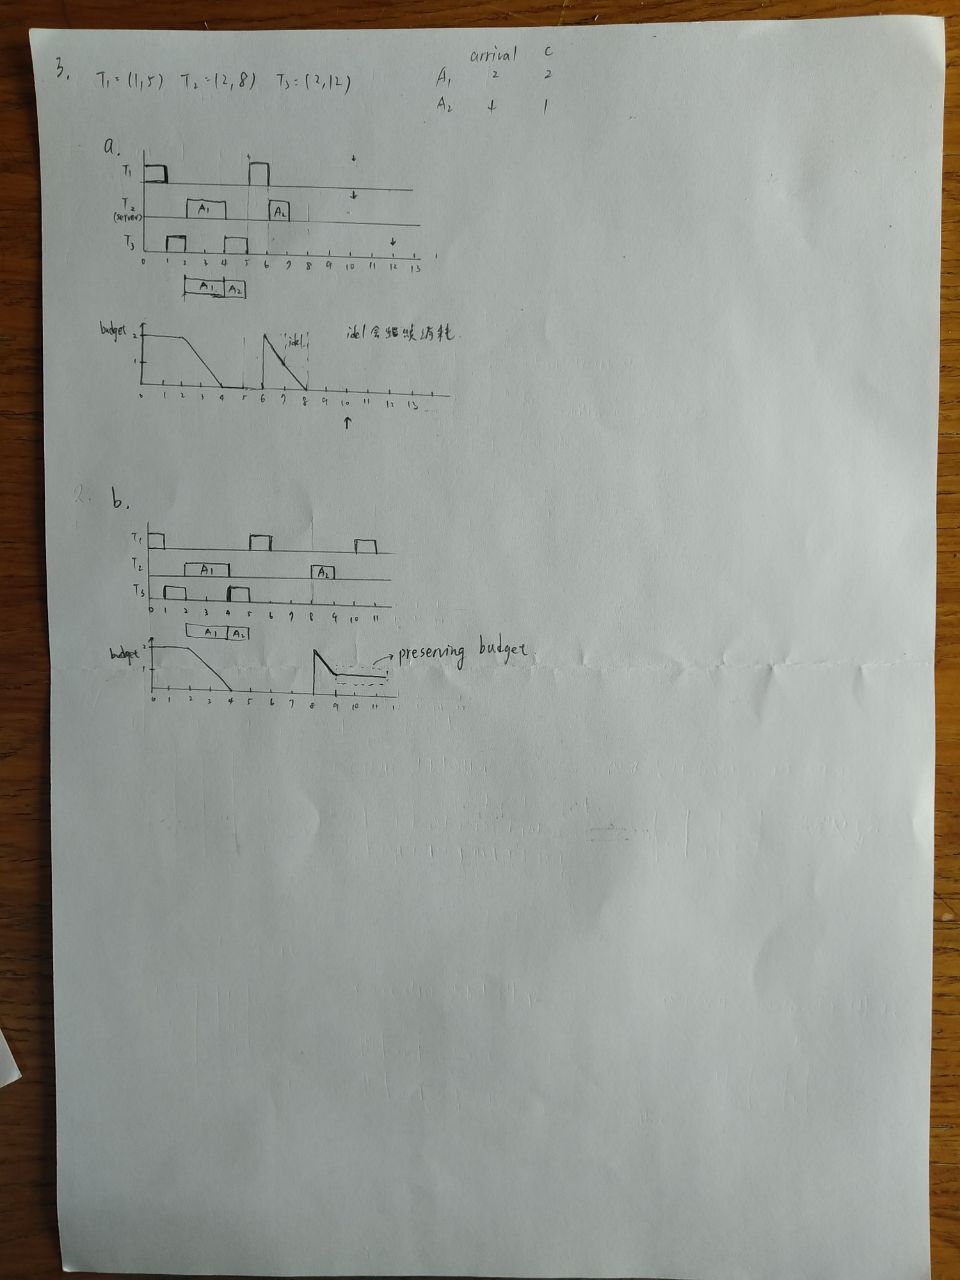 3.
T₁=(1,5) T₂=(2,8) T₃=(2,12)
arrival c
A₁ 2 2
A₂ 4 1
a.
T₁
T₂ A₁ A₂
(server)
T₃
0 1 2 3 4 5 6 7 8 9 10 11 12 13
A₁ A₂
budget 2 idel idel会繼續消耗
1
0 1 2 3 4 5 6 7 8 9 10 11 12 13
2. b.
T₁
T₂ A₁ A₂
T₃
0 1 2 3 4 5 6 7 8 9 10 11
A₁ A₂
budget 2 preserving budget
1
0 1 2 3 4 5 6 7 8 9 10 11